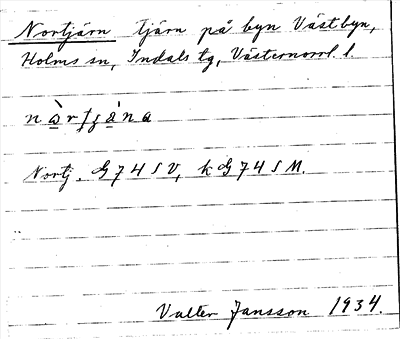 Nortjärn tjärn på byn Västbyn,
Holms sn, Indals tg, Västernorrl. l.
Nortj. G74SV, k G74SM.
Valter Jansson 1934.